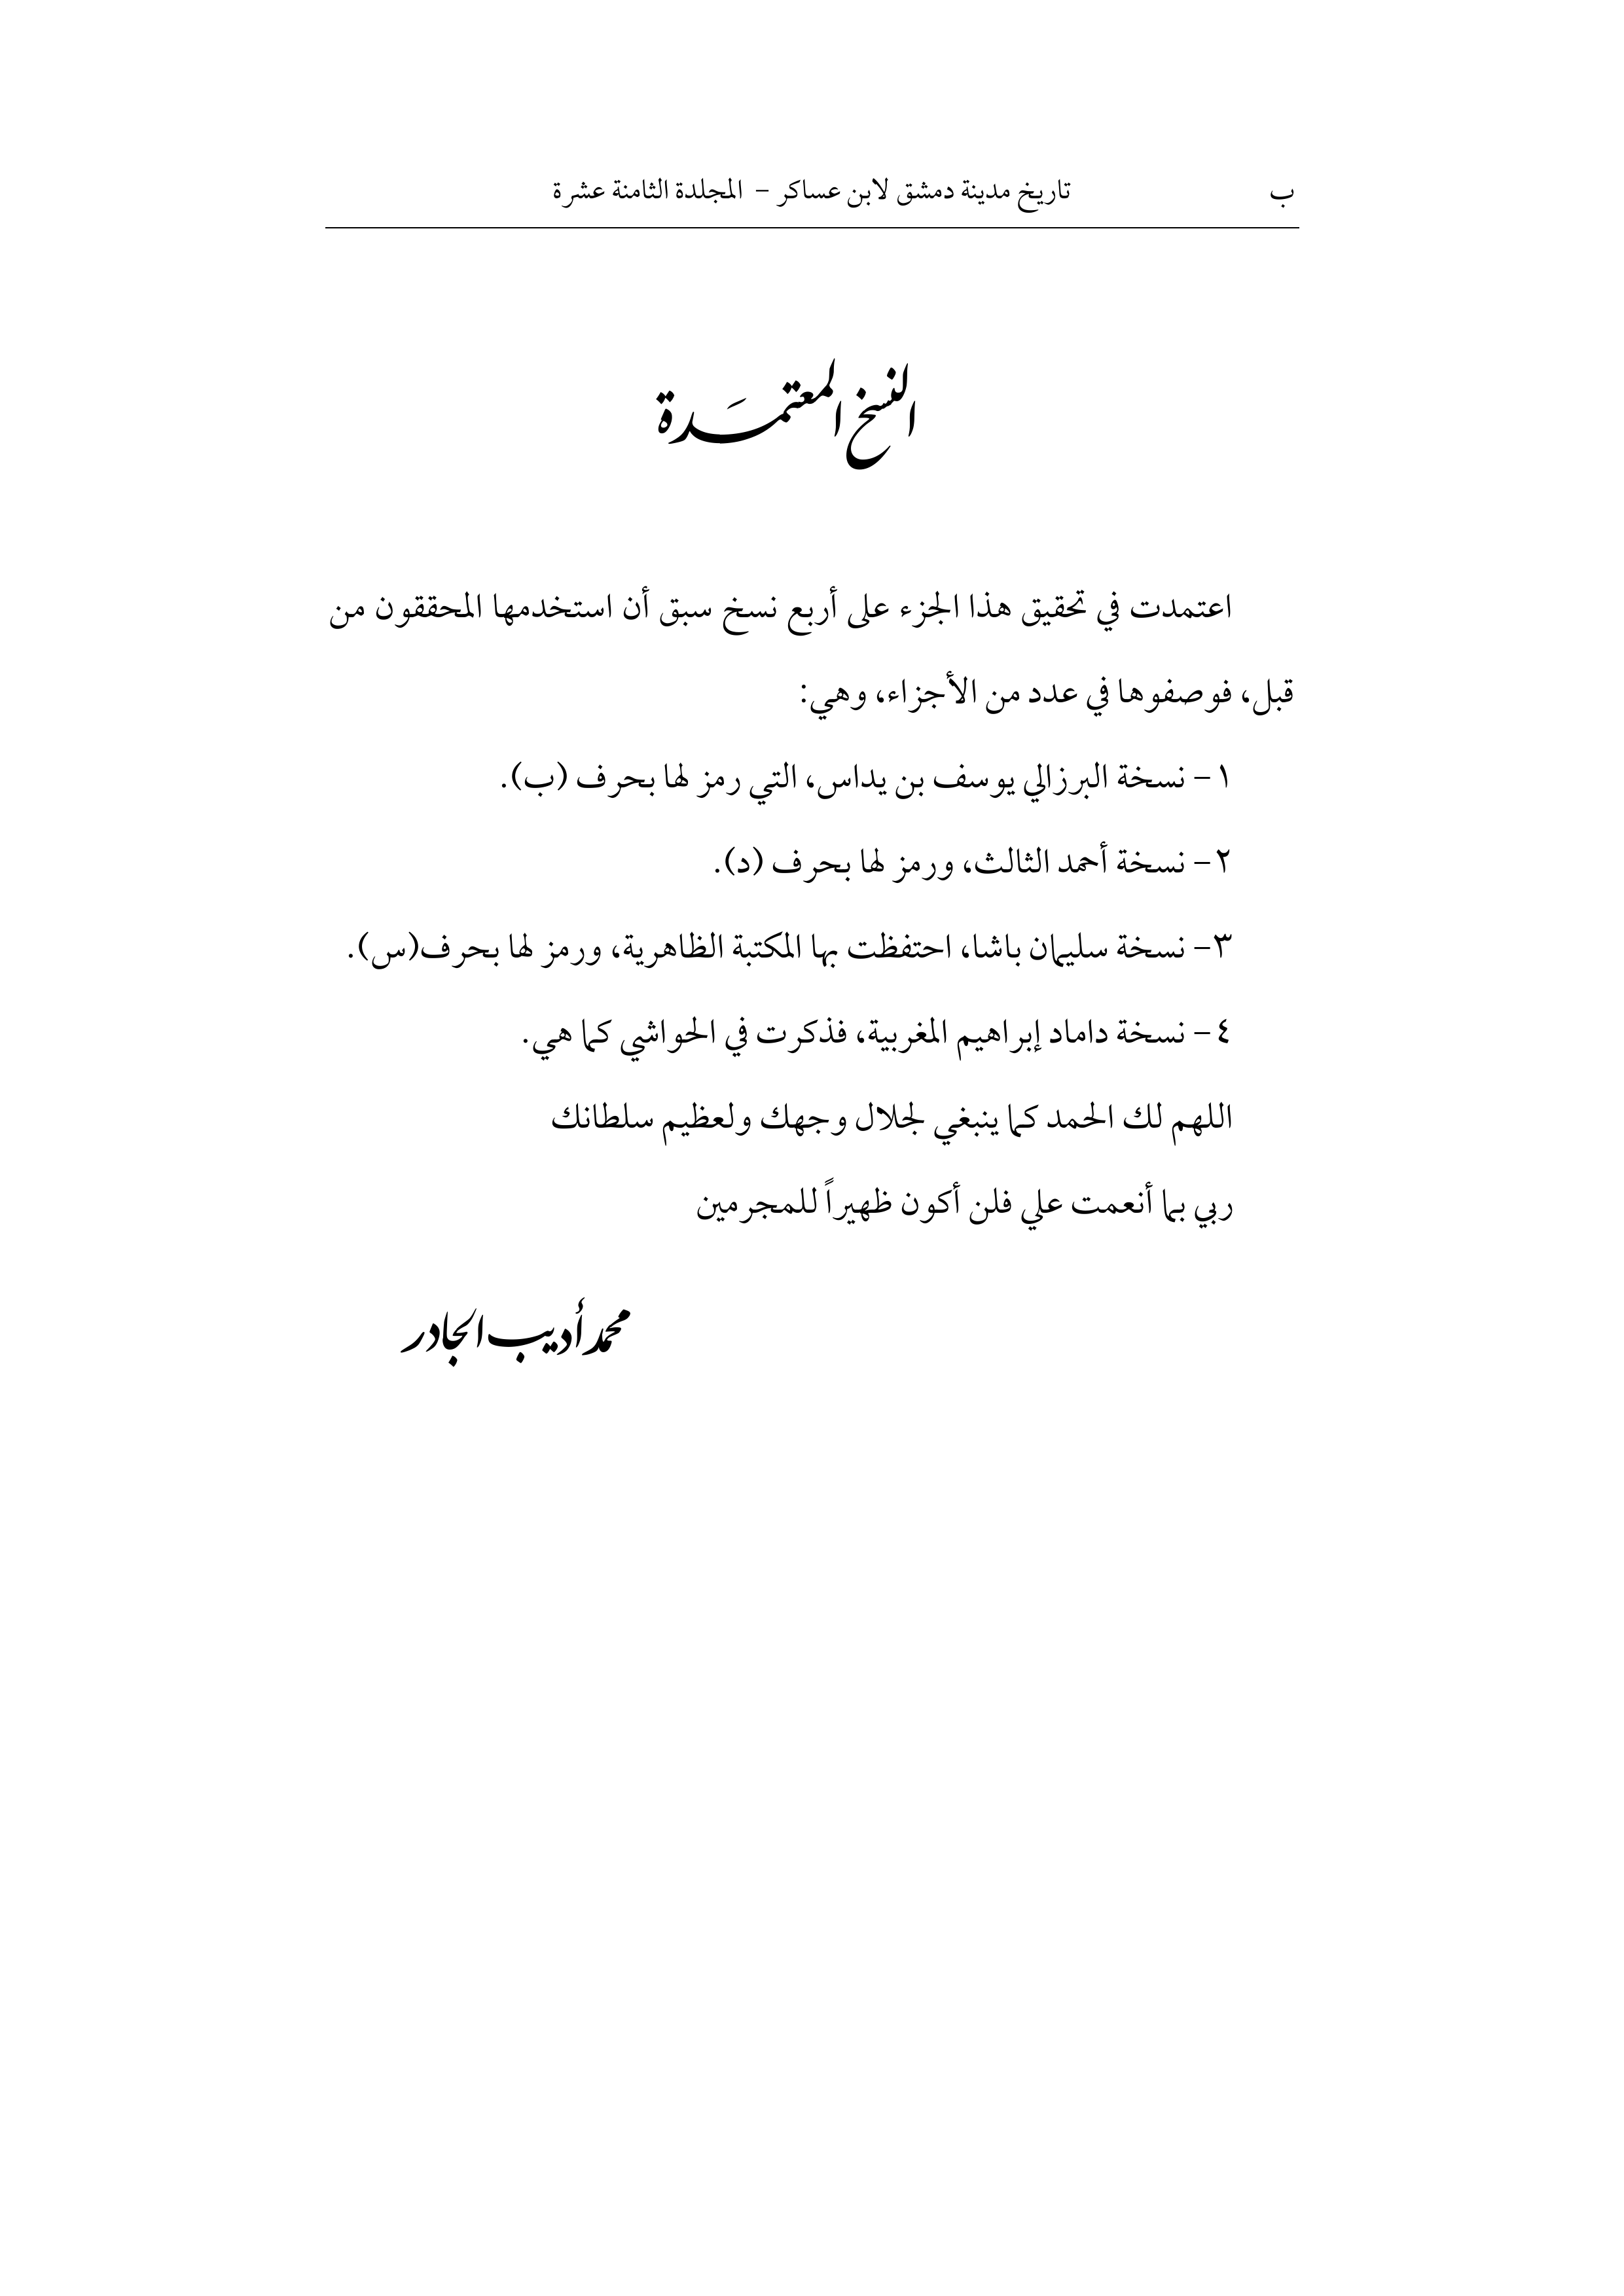 ب
تاريخ مدينة دمشق لابن عساكر – المجلدة الثامنة عشرة
النسخ المعتمَدة
اعتمدت في تحقيق هذا الجزء على أربع نسخ سبق أن استخدمها المحققون من
قبل، فوصفوها في عدد من الأجزاء، وهي:
١– نسخة البرزالي يوسف بن يداس، التي رمز لها بحرف (ب).
٢– نسخة أحمد الثالث، ورمز لها بحرف (د).
٣– نسخة سليمان باشا، احتفظت بها المكتبة الظاهرية، ورمز لها بحرف(س).
٤– نسخة داماد إبراهيم المغربية، فذكرت في الحواشي كما هي.
اللهم لك الحمد كما ينبغي لجلال وجهك ولعظيم سلطانك
ربي بما أنعمت علي فلن أكون ظهيراً للمجرمين
محمد أديب الجادر